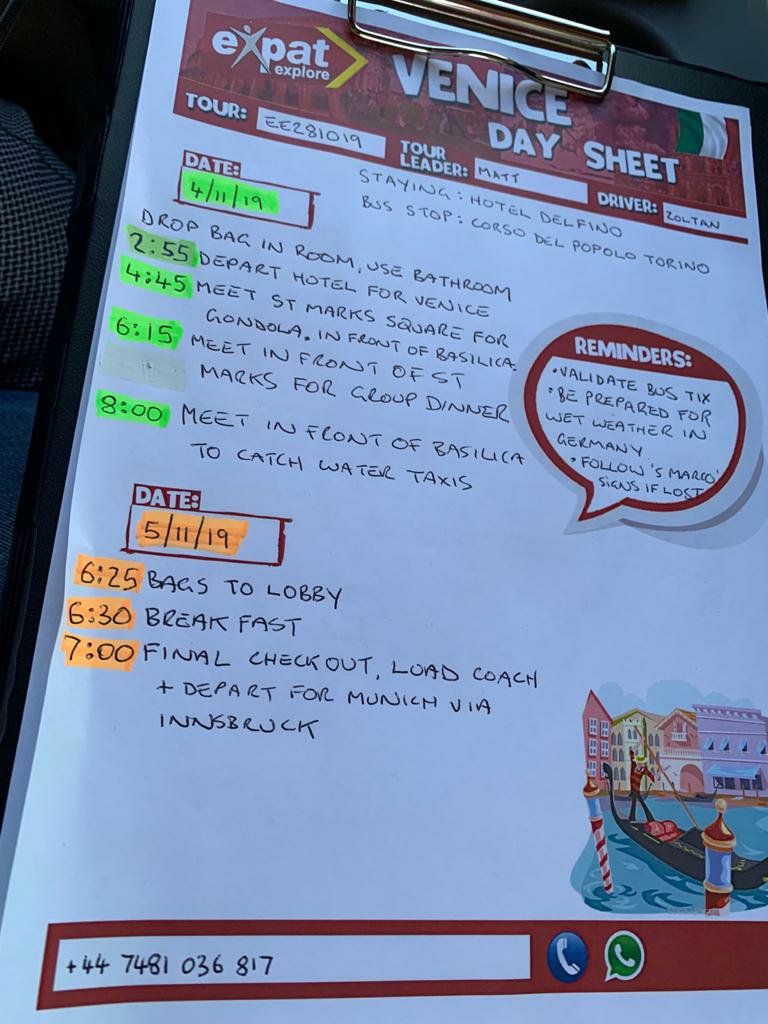 expat
explore
VENICE
DAY SHEET
TOUR: EE281019
TOUR LEADER: MATT
DRIVER: ZOLTAN
DATE:
4/11/19
STAYING: HOTEL DELFINO
BUS STOP: CORSO DEL POPOLO TORINO
DROP BAG IN ROOM, USE BATHROOM
2:55 DEPART HOTEL FOR VENICE
4:45 MEET ST MARKS SQUARE FOR
GONDOLA. IN FRONT OF BASILICA.
6:15 MEET IN FRONT OF ST
MARKS FOR GROUP DINNER
8:00 MEET IN FRONT OF BASILICA
TO CATCH WATER TAXIS
REMINDERS:
• VALIDATE BUS TIX
• BE PREPARED FOR
WET WEATHER IN
GERMANY
• FOLLOW 'S MARCO'
SIGNS IF LOST
DATE:
5/11/19
6:25 BAGS TO LOBBY
6:30 BREAK FAST
7:00 FINAL CHECKOUT, LOAD COACH
+ DEPART FOR MUNICH VIA
INNSBRUCK
+44 7481 036 817